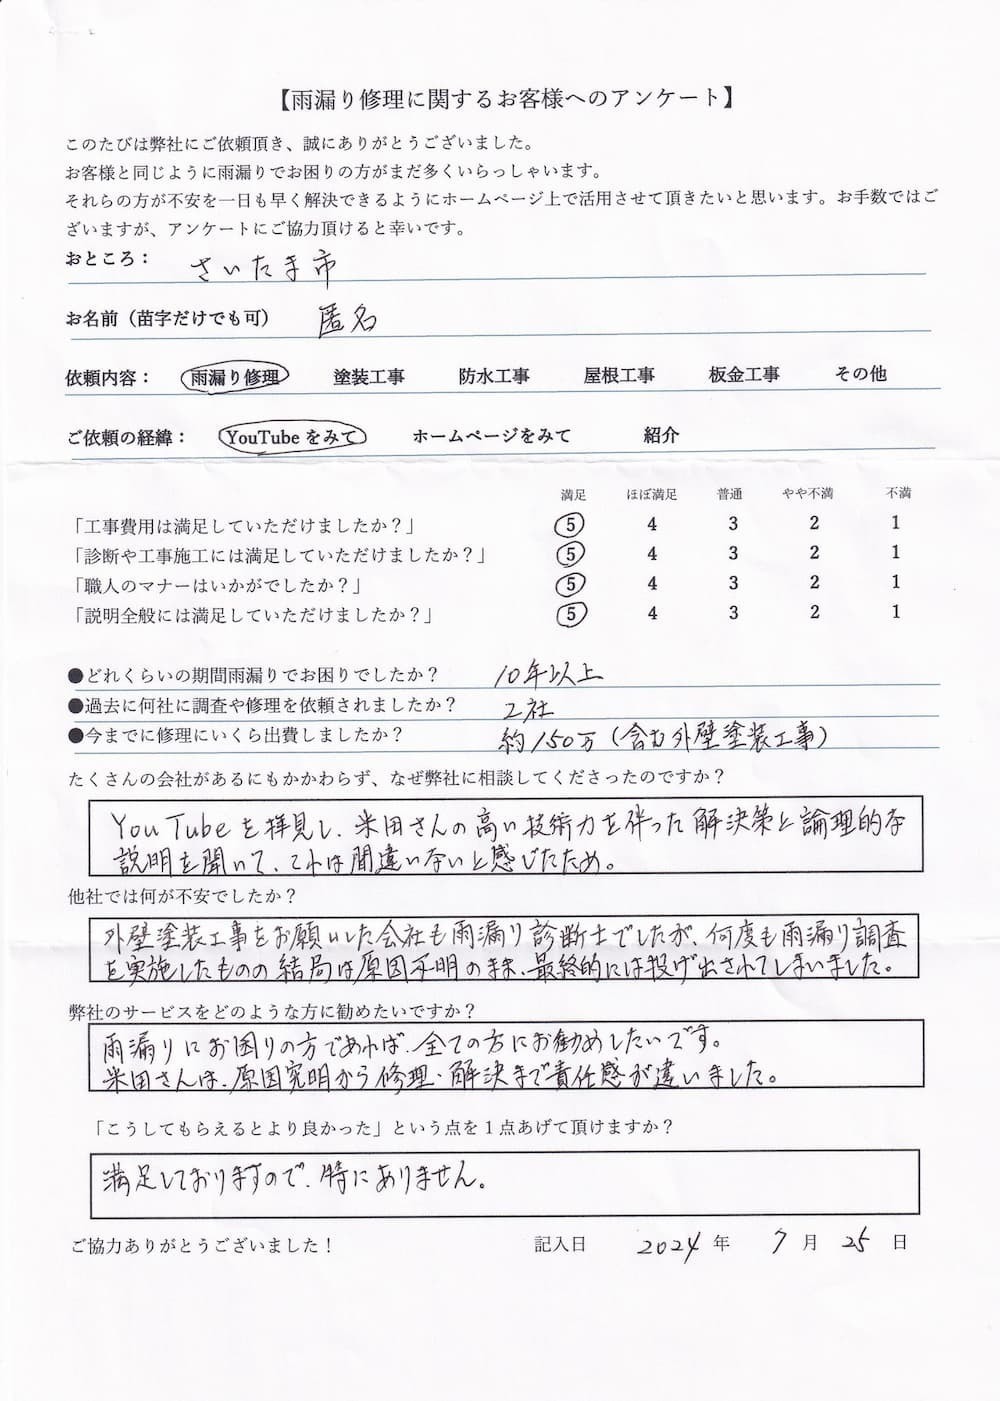 【雨漏り修理に関するお客様へのアンケート】
このたびは弊社にご依頼頂き、誠にありがとうございました。
お客様と同じように雨漏りでお困りの方がまだ多くいらっしゃいます。
それらの方が不安を一日も早く解決できるようにホームページ上で活用させて頂きたいと思います。お手数ではご
ざいますが、アンケートにご協力頂けると幸いです。
おところ： さいたま市
お名前（苗字だけでも可） 匿名
依頼内容： 雨漏り修理 塗装工事 防水工事 屋根工事 板金工事 その他
ご依頼の経緯： YouTubeをみて ホームページをみて 紹介
満足 ほぼ満足 普通 やや不満 不満
「工事費用は満足していただけましたか？」 5 4 3 2 1
「診断や工事施工には満足していただけましたか？」 5 4 3 2 1
「職人のマナーはいかがでしたか？」 5 4 3 2 1
「説明全般には満足していただけましたか？」 5 4 3 2 1
●どれくらいの期間雨漏りでお困りでしたか？ 10年以上
●過去に何社に調査や修理を依頼されましたか？ 2社
●今までに修理にいくら出費しましたか？ 約150万（含む外壁塗装工事）
たくさんの会社があるにもかかわらず、なぜ弊社に相談してくださったのですか？
YouTubeを拝見し、米田さんの高い技術力を伴った解決策と論理的な
説明を聞いて、これは間違いないと感じたため。
他社では何が不安でしたか？
外壁塗装工事をお願いした会社も雨漏り診断士でしたが、何度も雨漏り調査
を実施したものの結局は原因不明のまま、最終的には投げ出されてしまいました。
弊社のサービスをどのような方に勧めたいですか？
雨漏りにお困りの方であれば、全ての方にお勧めしたいです。
米田さんは、原因究明から修理・解決まで責任感が違いました。
「こうしてもらえるとより良かった」という点を１点あげて頂けますか？
満足しておりますので、特にありません。
ご協力ありがとうございました！ 記入日 2024 年 7 月 25 日